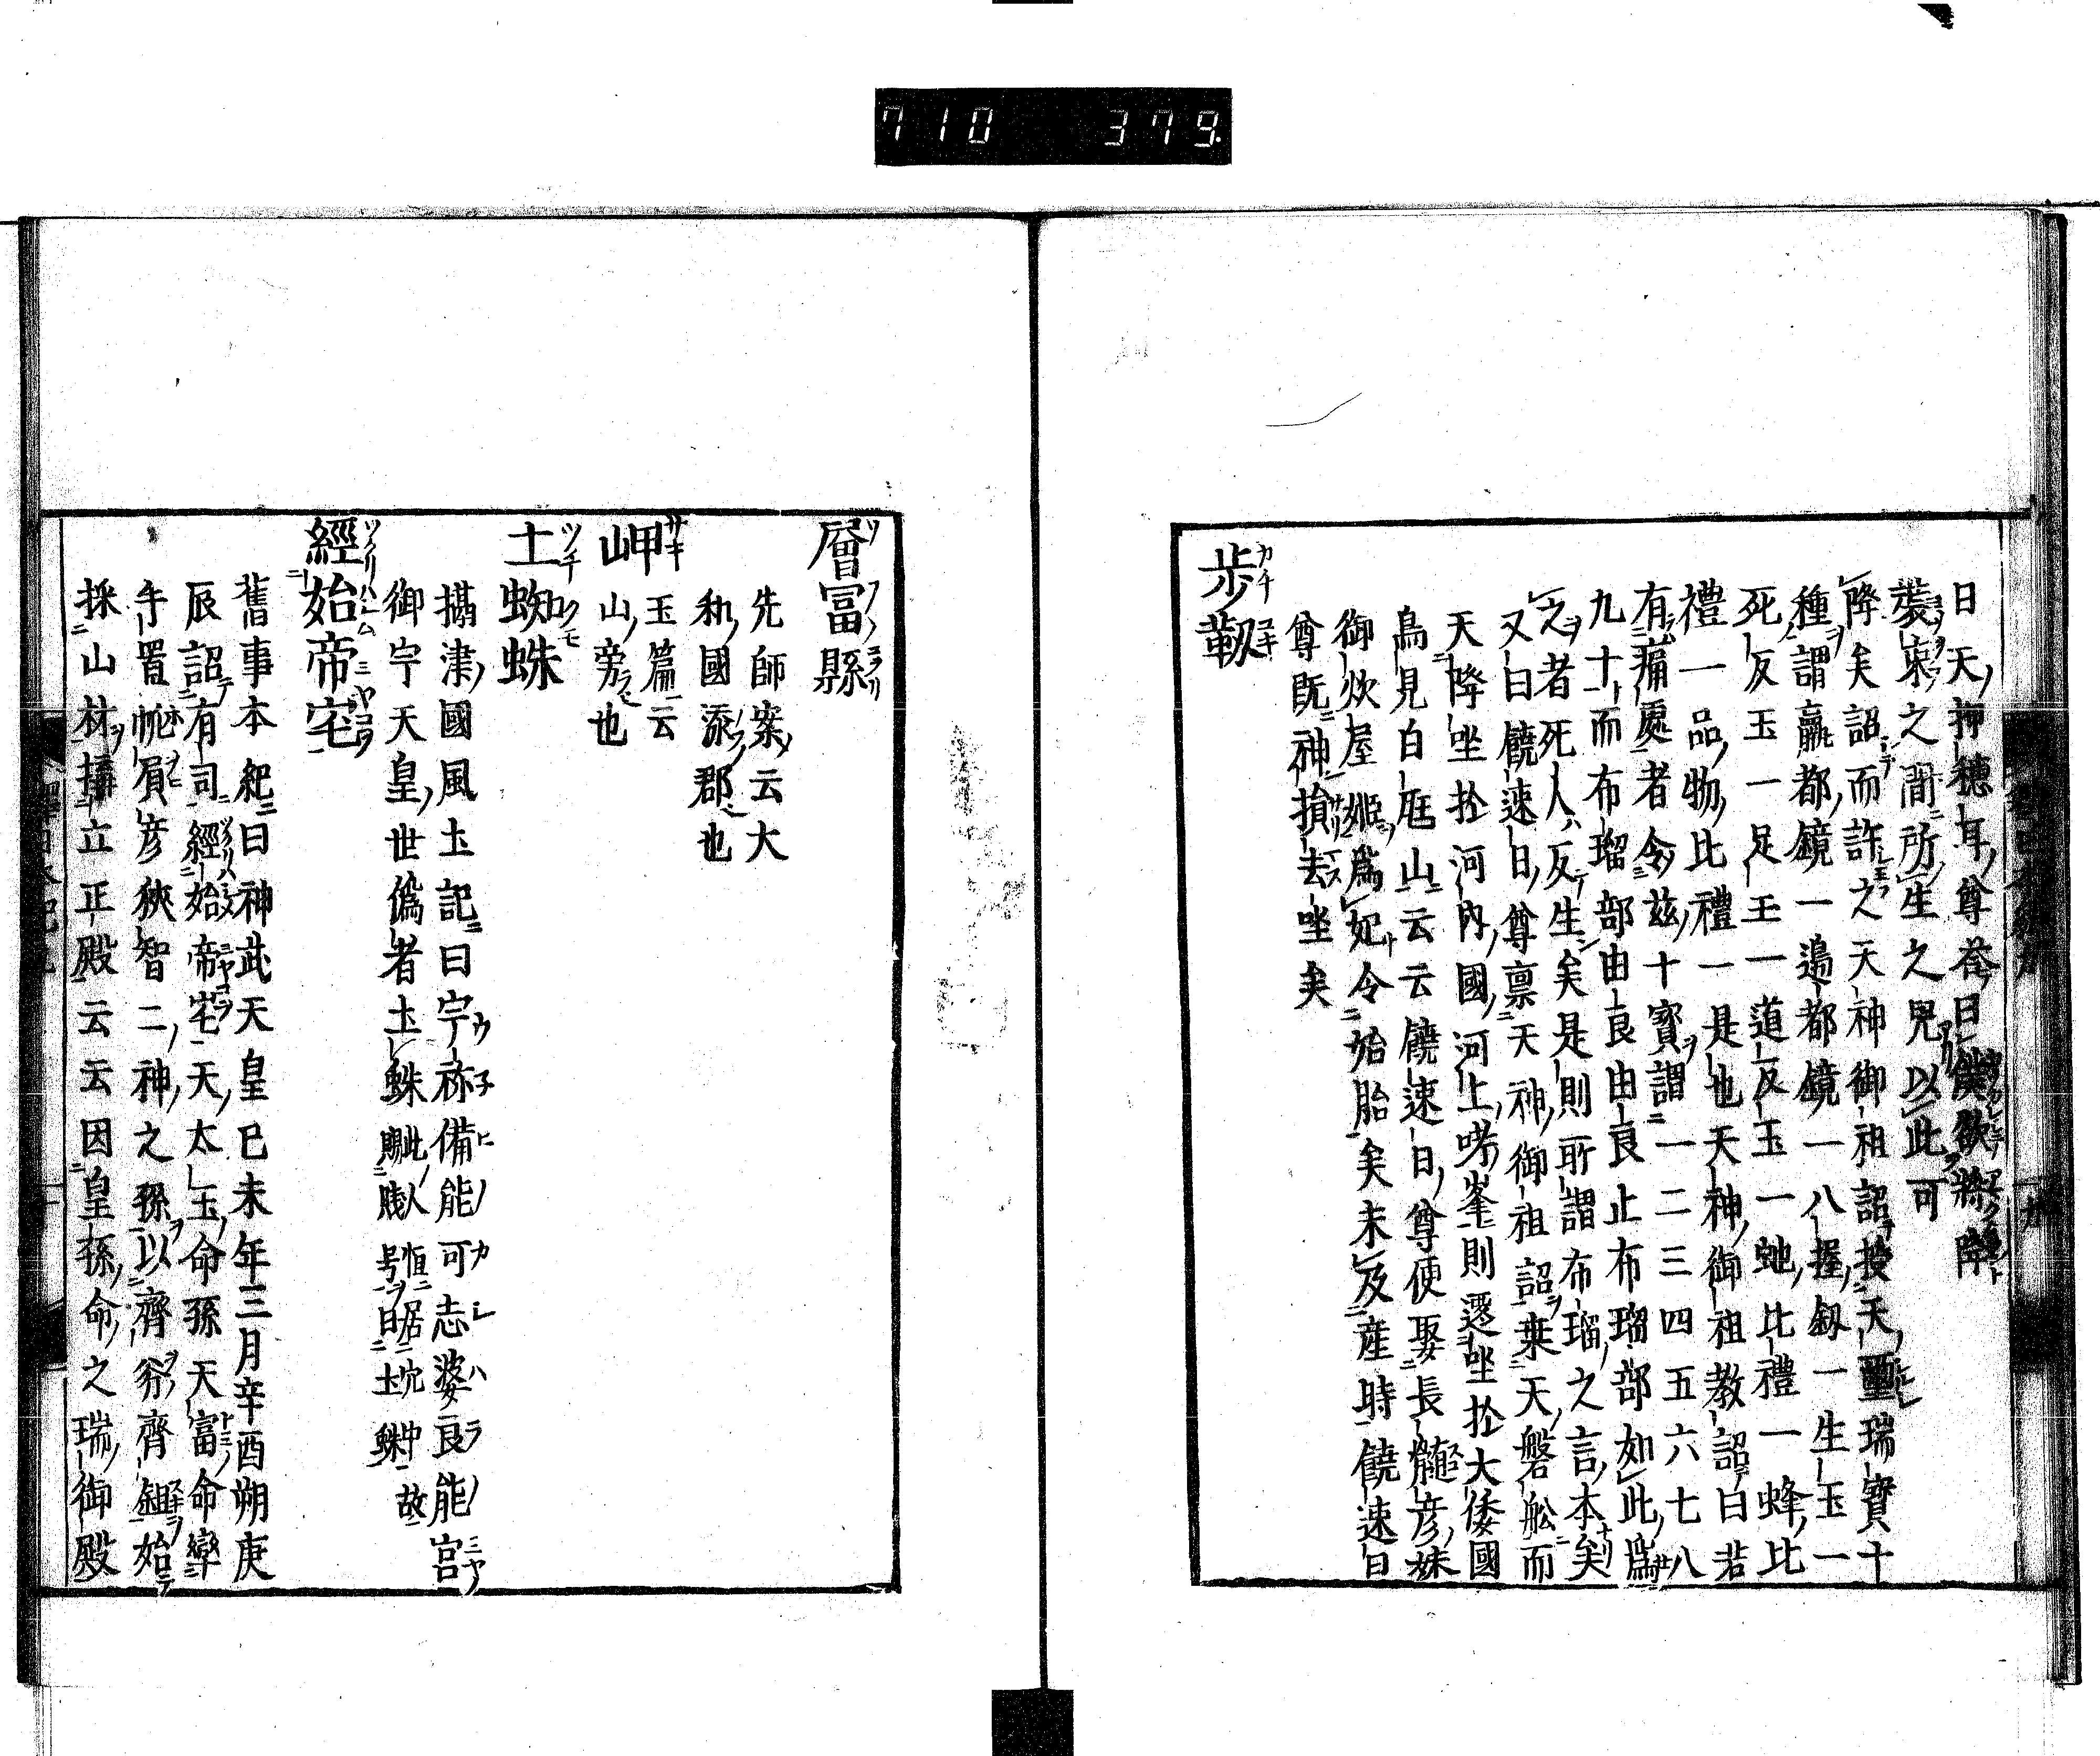 710 379
日天押穗耳尊荅曰僕欲將降
裝束之間所生之兒以此可
降矣詔而許之天神御祖詔授天璽瑞寶十
種謂羸都鏡一邉都鏡一八握釼一生玉一
死反玉一足玉一道反玉一虵比禮一蜂比
禮一品物比禮一是也天神御祖教詔曰若
有痛處者令茲十寳謂一二三四五六七八
九十而布瑠部由良由良止布瑠部如此爲
之者死人反生矣是則所謂布瑠之言本矣
又曰饒速日尊禀天神御祖詔乗天磐舩而
天降坐扵河内國河上哮峯則遷坐扵大倭國
鳥見白庭山云云饒速日尊便娶長髄彦妹
御炊屋姬爲妃令始胎矣未及産時饒速日
尊既神損去坐矣
步靱
層冨縣
先師案云大
和國添郡也
岬
玉篇云
山旁也
土蜘蛛
攝津國風土記曰宇祢備能可志婆良能宮
御宇天皇世僞者土蛛此人恒居穴中故
賜賤号曰土蛛
經始帝宅
舊事本紀曰神武天皇己未年三月辛酉朔庚
辰詔有司經始帝宅天太玉命孫天富命率
手置帆屓彦狹智二神之孫以齊斧齊鉏始
採山材搆立正殿云云因皇孫命之瑞御殿